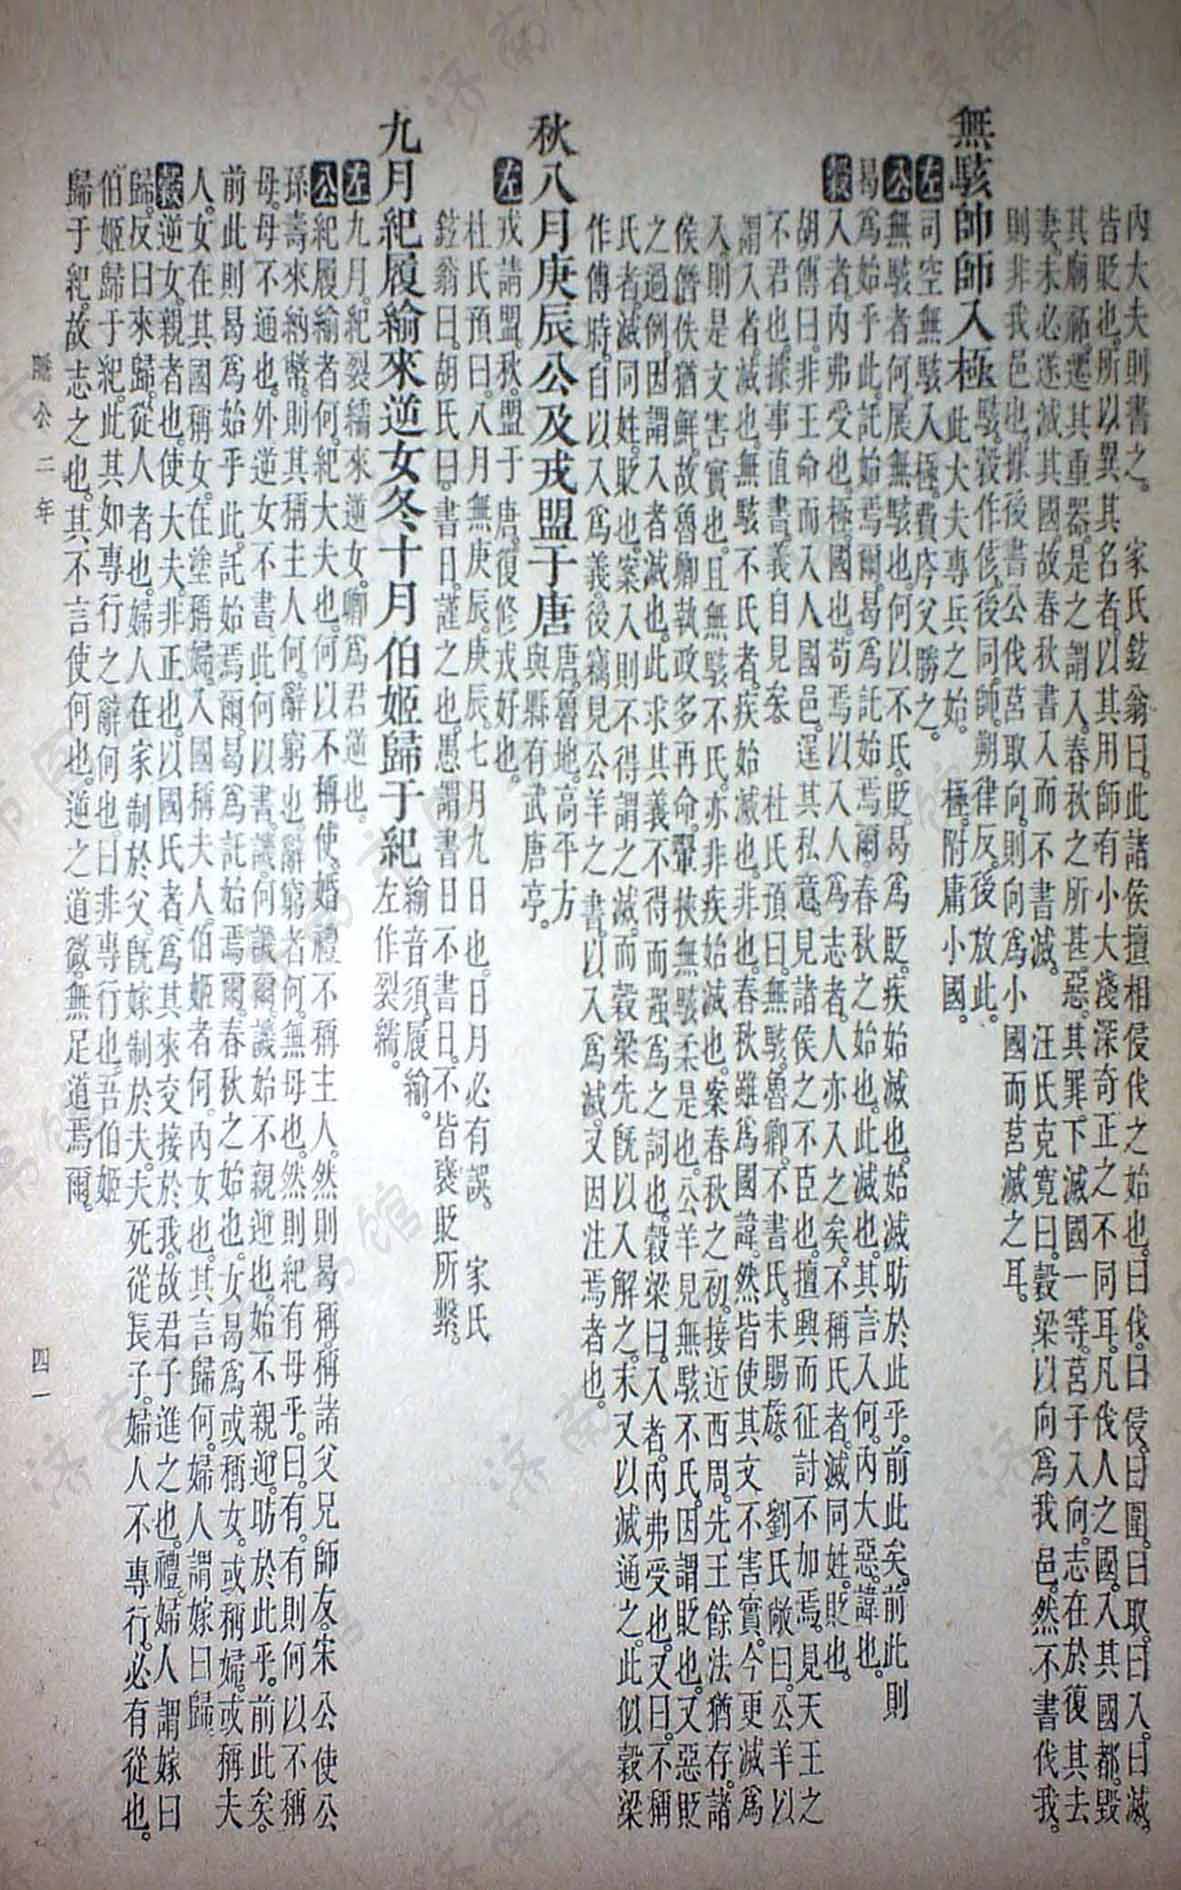 內大夫則書之。　家氏鉉翁曰。此諸侯擅相侵伐之始也。曰伐。曰侵。曰圍。曰取。曰入。曰滅。
皆貶也。所以異其名者。以其用師有小大淺深奇正之不同耳。凡伐人之國。入其國都。毀
其廟祏。遷其重器。是之謂入。春秋之所甚惡。其罪下滅國一等。莒子入向。志在於復其去
妻。未必遂滅其國。故春秋書入而不書滅。　汪氏克寬曰。穀梁以向爲我邑。然不書伐我。
則非我邑也。據後書公伐莒取向。則向爲小國而莒滅之耳。
無駭師師入極
駭。穀作侅。後同。師。朔律反。後放此。
此大夫專兵之始。　極。附庸小國。
左司空無駭入極。費庈父勝之。
公無駭者何。展無駭也。何以不氏。貶。曷爲貶。疾始滅也。始滅昉於此乎。前此矣。前此則
曷爲始乎此。託始焉爾。曷爲託始焉爾。春秋之始也。此滅也。其言入何。內大惡諱也。
穀入者。內弗受也。極。國也。苟焉以入人爲志者。人亦入之矣。不稱氏者。滅同姓。貶也。
胡傳曰。非王命而入人國邑。逞其私意。見諸侯之不臣也。擅興而征討不加焉。見天王之
不君也。據事直書。義自見矣。　杜氏預曰。無駭。魯卿。不書氏。未賜族。　劉氏敞曰。公羊以
謂入者。滅也。無駭不氏者。疾始滅也。非也。春秋雖爲國諱。然皆使其文不害實。今更滅爲
入。則是文害實也。且無駭不氏。亦非疾始滅也。案春秋之初。接近西周。先王餘法猶存。諸
侯僭佚猶鮮。故魯卿執政多再命。翬挾無駭柔是也。公羊見無駭不氏。因謂貶也。又惡貶
之過例。因謂入者滅也。此求其義不得而强爲之詞也。穀梁曰。入者。內弗受也。又曰。不稱
氏者。滅同姓。貶也。案入則不得謂之滅。而穀梁先旣以入解之。末又以滅通之。此似穀梁
作傳時。自以入爲義。後竊見公羊之書。以入爲滅。又因注焉者也。
秋八月庚辰公及戎盟于唐
唐。魯地。高平方
與縣有武唐亭。
左戎請盟。秋。盟于唐。復修戎好也。
杜氏預曰。八月無庚辰。庚辰。七月九日也。日月必有誤。　家氏
鉉翁曰。胡氏曰。書日。謹之也。愚謂書日不書日。不皆襃貶所繫。
九月紀履緰來逆女冬十月伯姬歸于紀
緰音須。履緰。
左作裂繻。
左九月。紀裂繻來逆女。卿爲君逆也。
公紀履緰者何。紀大夫也。何以不稱使。婚禮不稱主人。然則曷稱。稱諸父兄師友。宋公使公
孫壽來納幣。則其稱主人何。辭窮也。辭窮者何。無母也。然則紀有母乎。曰。有。有則何以不稱
母。母不通也。外逆女不書。此何以書。譏。何譏爾。譏始不親迎也。始不親迎。昉於此乎。前此矣。
前此則曷爲始乎此。託始焉爾。曷爲託始焉爾。春秋之始也。女曷爲或稱女。或稱婦。或稱夫
人。女在其國稱女。在塗稱婦。入國稱夫人。伯姬者何。內女也。其言歸何。婦人謂嫁曰歸。
穀逆女。親者也。使大夫。非正也。以國氏者。爲其來交接於我。故君子進之也。禮。婦人謂嫁曰
歸。反曰來歸。從人者也。婦人在家制於父。旣嫁制於夫。夫死從長子。婦人不專行。必有從也。
伯姬歸于紀。此其如專行之辭何也。曰非專行也。吾伯姬
歸于紀。故志之也。其不言使何也。逆之道微。無足道焉爾。
隱公二年
四一